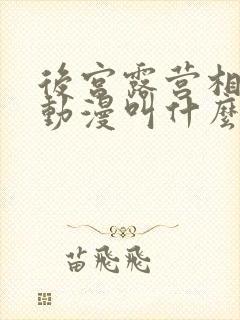 後宮露营相
動漫叫什麼
苗飛飛